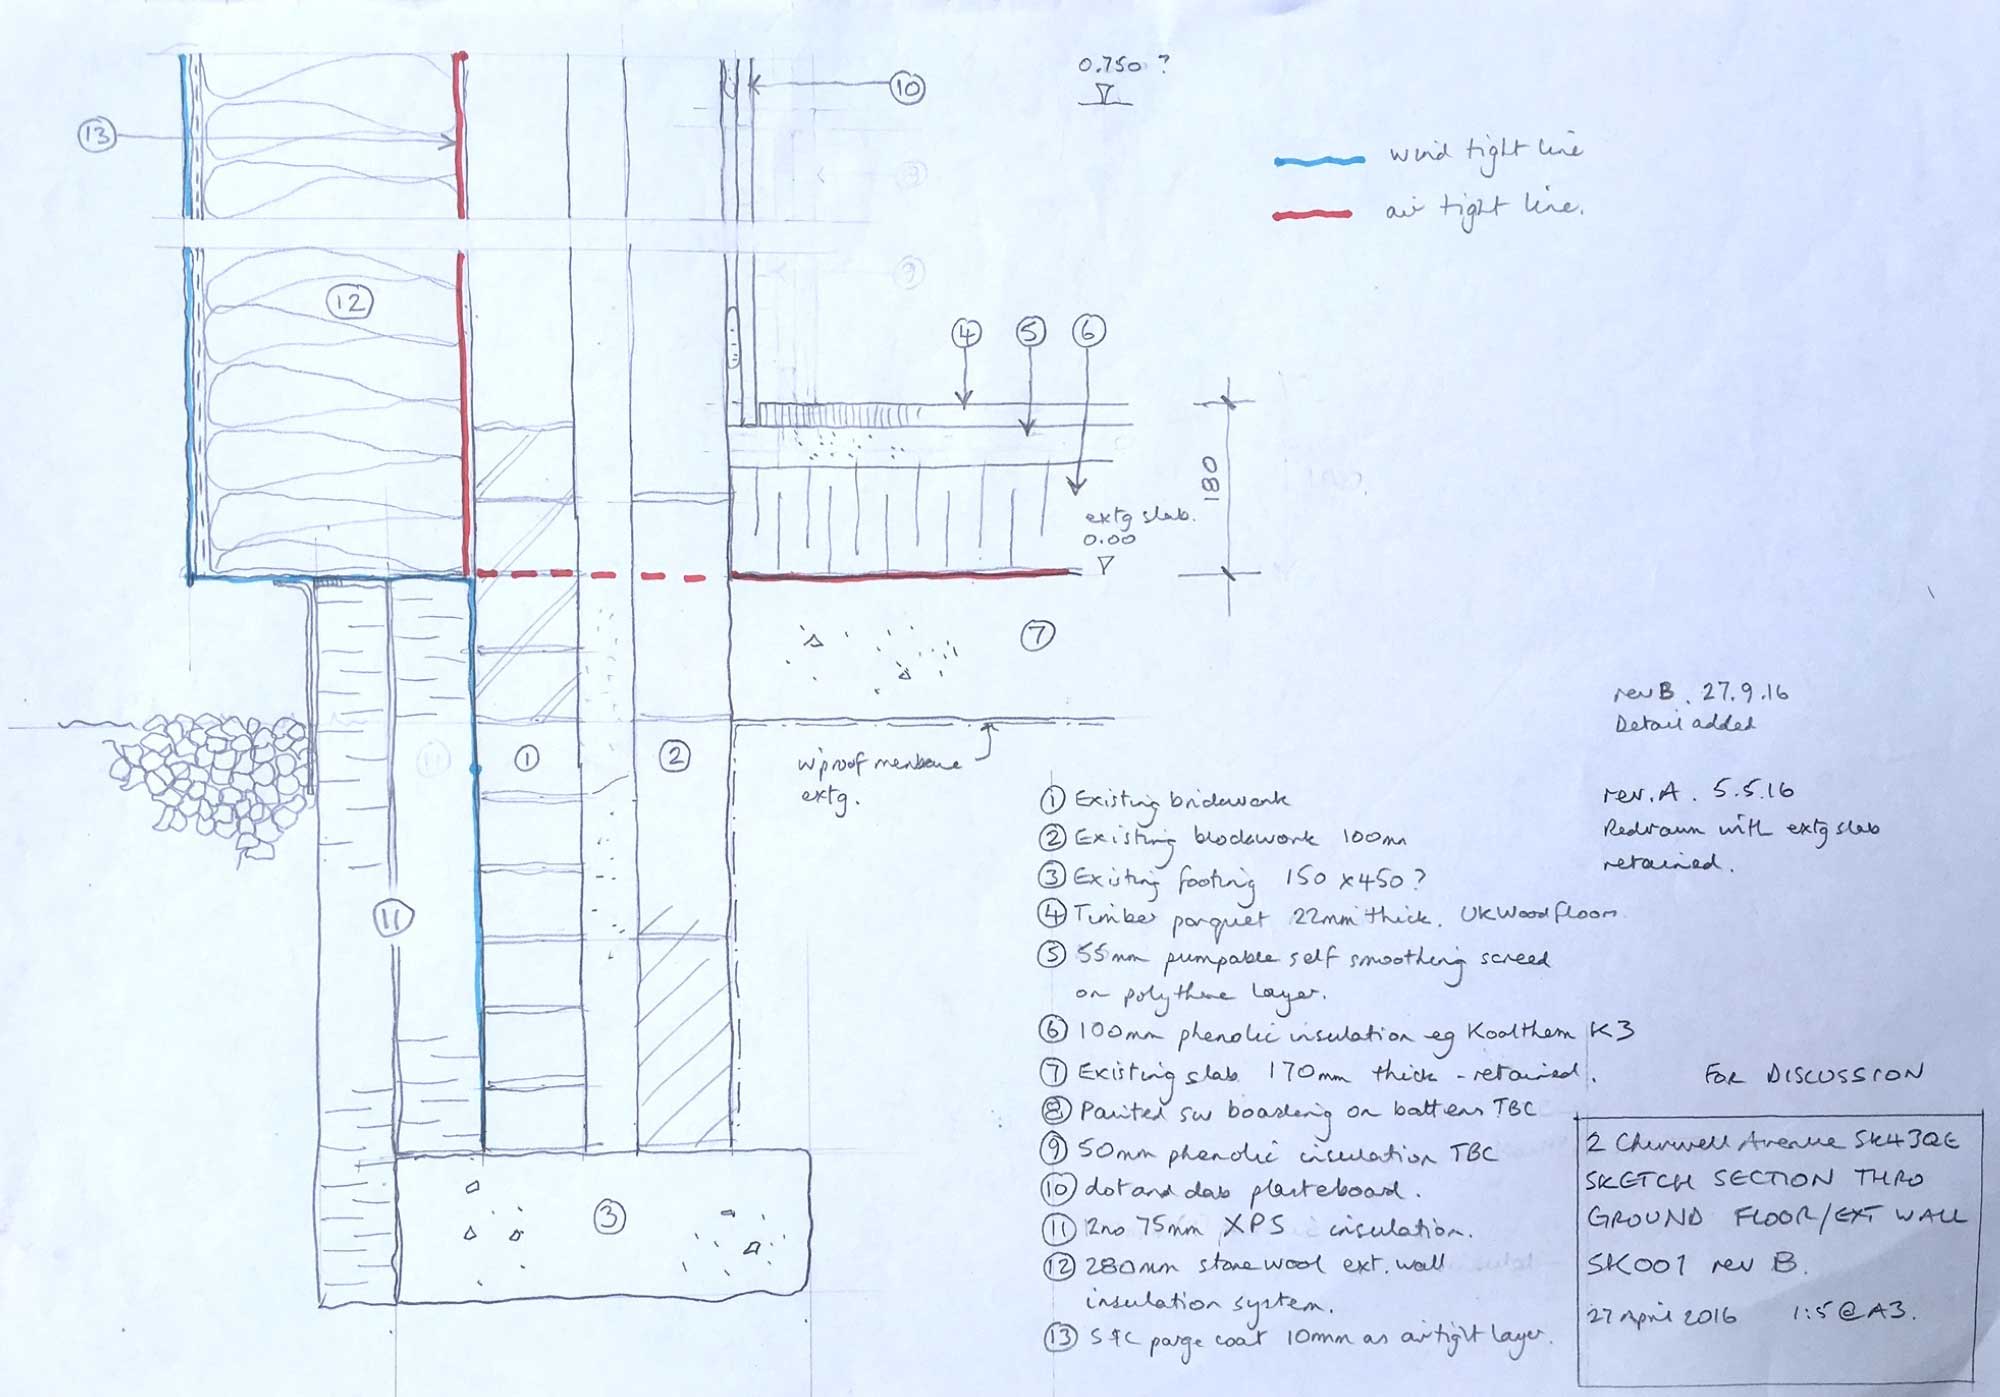 0.750 ?
10
13
wind tight line
air tight line.
12
9
4 5 6
180
extg slab.
0.00
7
w'proof membrane
extg.
1
2
11
11
3
rev B. 27.9.16
Detail added
rev. A. 5.5.16
Redrawn with extg slab
retained.
1 Existing brickwork
2 Existing blockwork 100mm
3 Existing footing 150 x 450?
4 Timber parquet 22mm thick. UKWoodfloors
5 55mm pumpable self smoothing screed
on polythene layer.
6 100mm phenolic insulation eg Kooltherm K3
7 Existing slab 170mm thick - retained.
8 Painted sw boarding on battens TBC
9 50mm phenolic insulation TBC
10 dot and dab plasterboard.
11 2no 75mm XPS insulation.
12 280mm stone wool ext. wall
insulation system.
13 S&C parge coat 10mm as airtight layer.
FOR DISCUSSION
2 Cherwell Avenue SK43QE
SKETCH SECTION THRO
GROUND FLOOR/EXT WALL
SK001 rev B.
27 April 2016 1:5@A3.